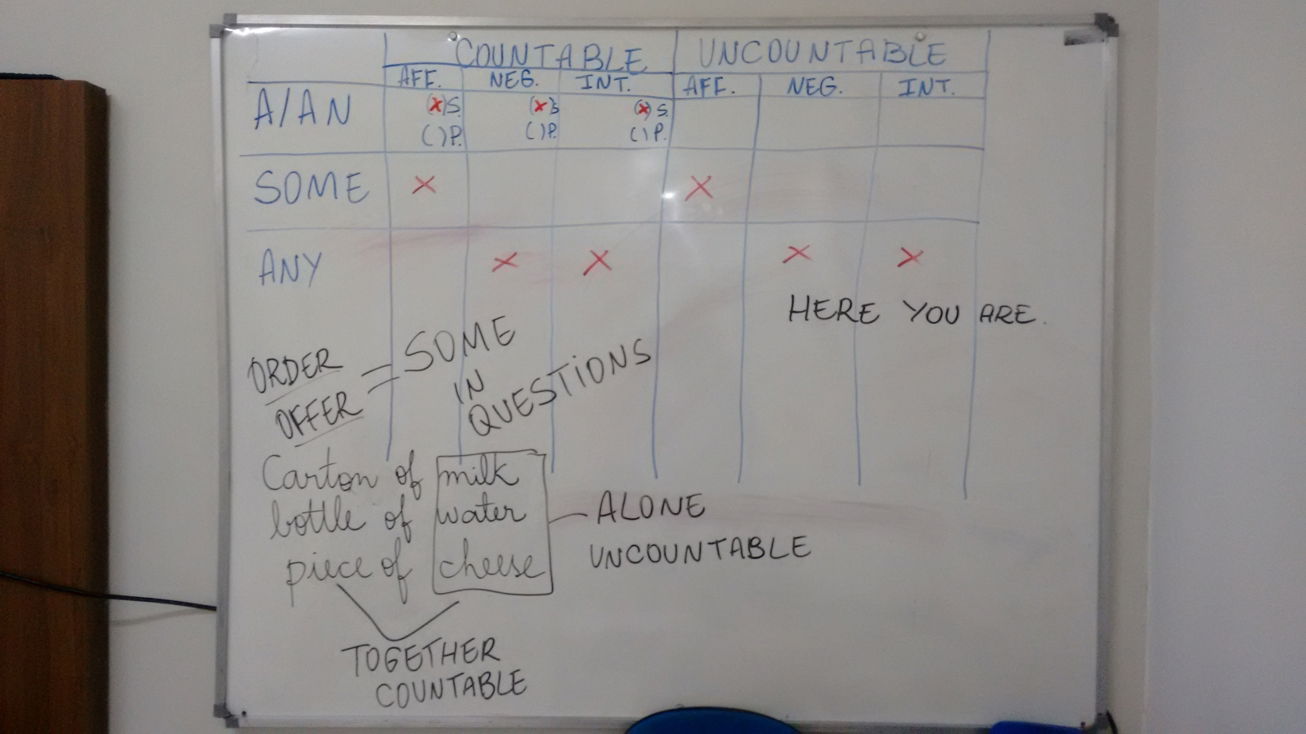 COUNTABLE UNCOUNTABLE
AFF. NEG. INT. AFF. NEG. INT.
A/AN (X)S. (X)S (X) S.
( )P. ( )P. ( ) P.
SOME X X
ANY X X X X
HERE YOU ARE.
ORDER
OFFER
= SOME
IN
QUESTIONS
Carton of milk
bottle of water
piece of cheese
ALONE
UNCOUNTABLE
TOGETHER
COUNTABLE